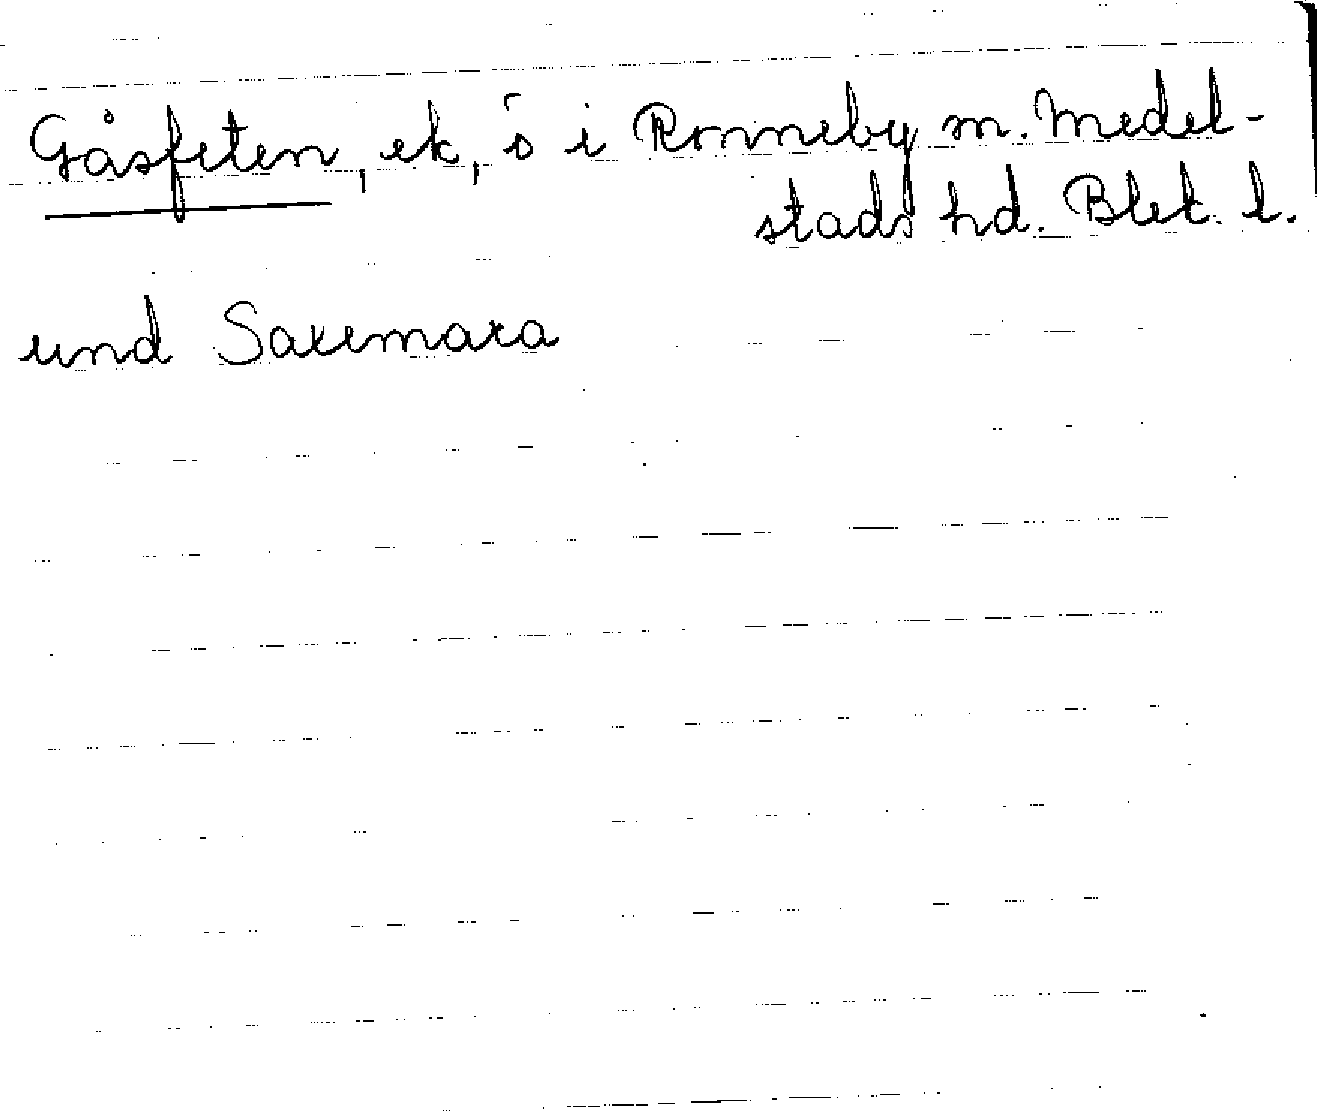 Gåsfeten, ek, ö i Ronneby m. Medel-
stads hd. Blek. l.
und Saxemara